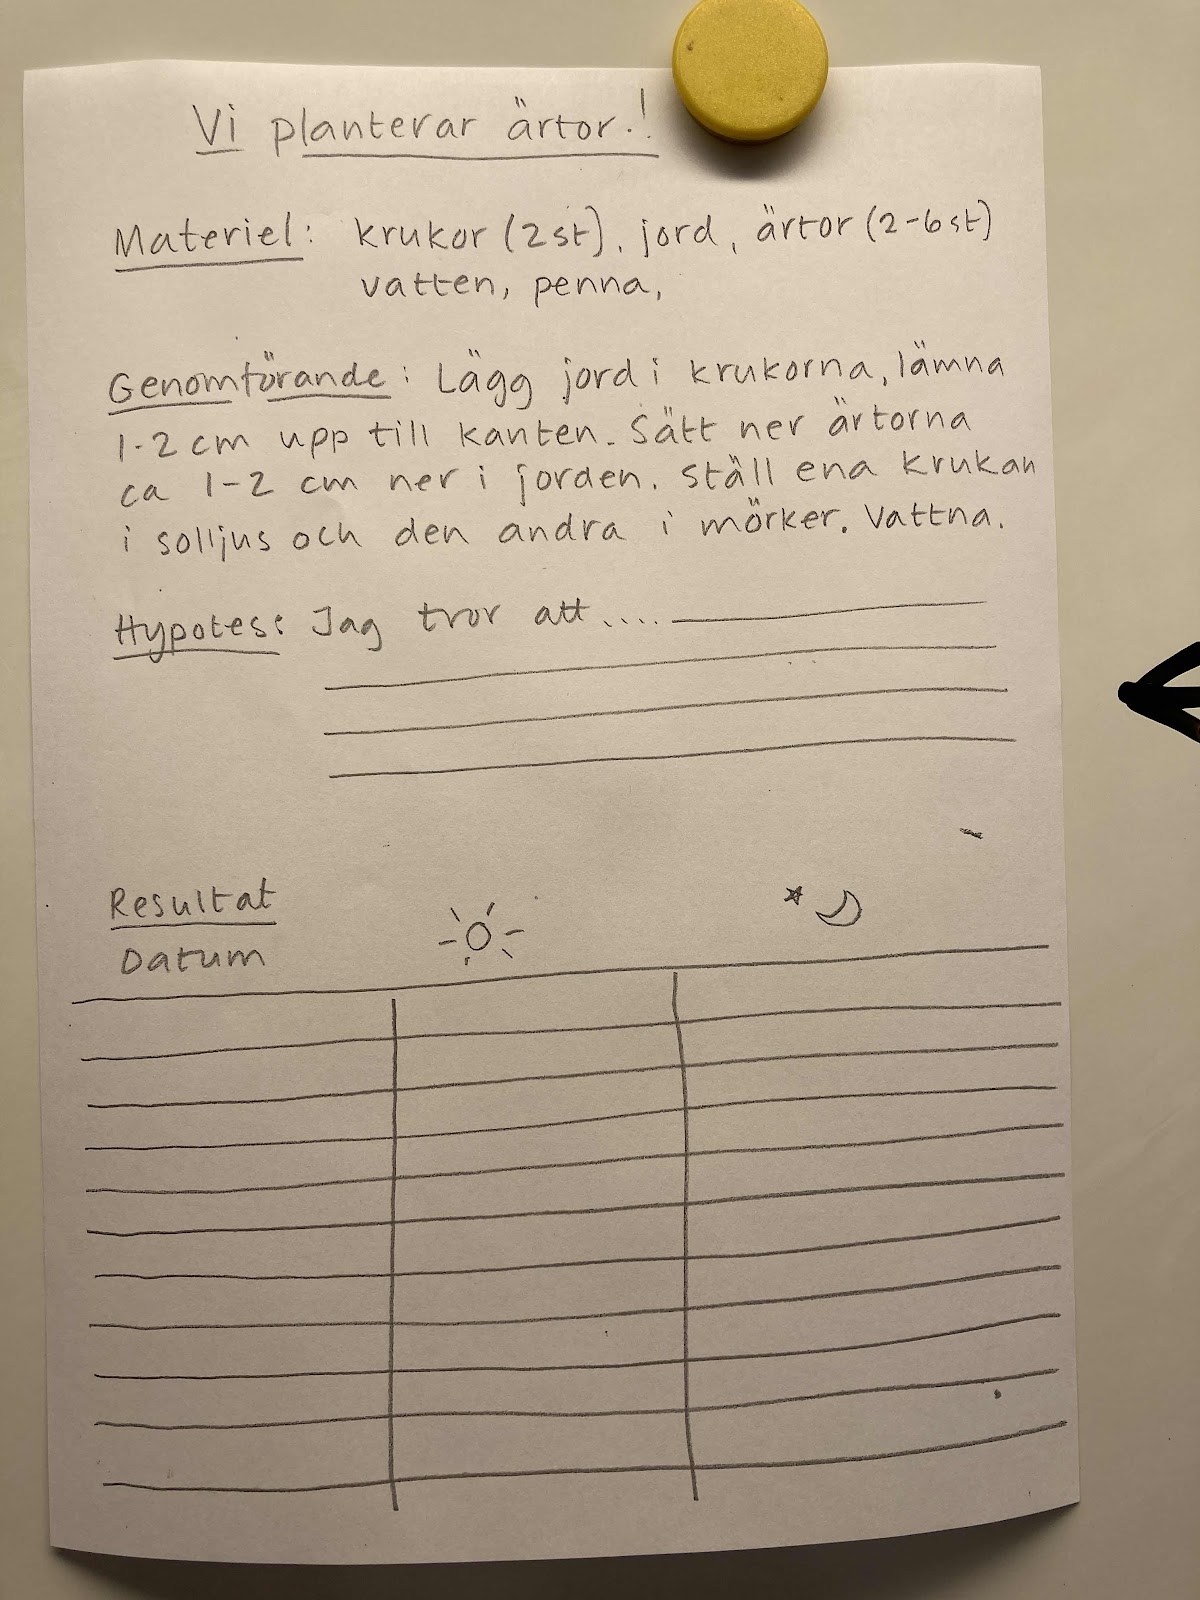 Vi planterar ärtor.!
Materiel: krukor (2st), jord, ärtor (2-6st)
vatten, penna,
Genomförande: Lägg jord i krukorna, lämna
1-2 cm upp till kanten. Sätt ner ärtorna
ca 1-2 cm ner i jorden. ställ ena krukan
i solljus och den andra i mörker. Vattna.
Hypotes: Jag tror att....
Resultat
Datum